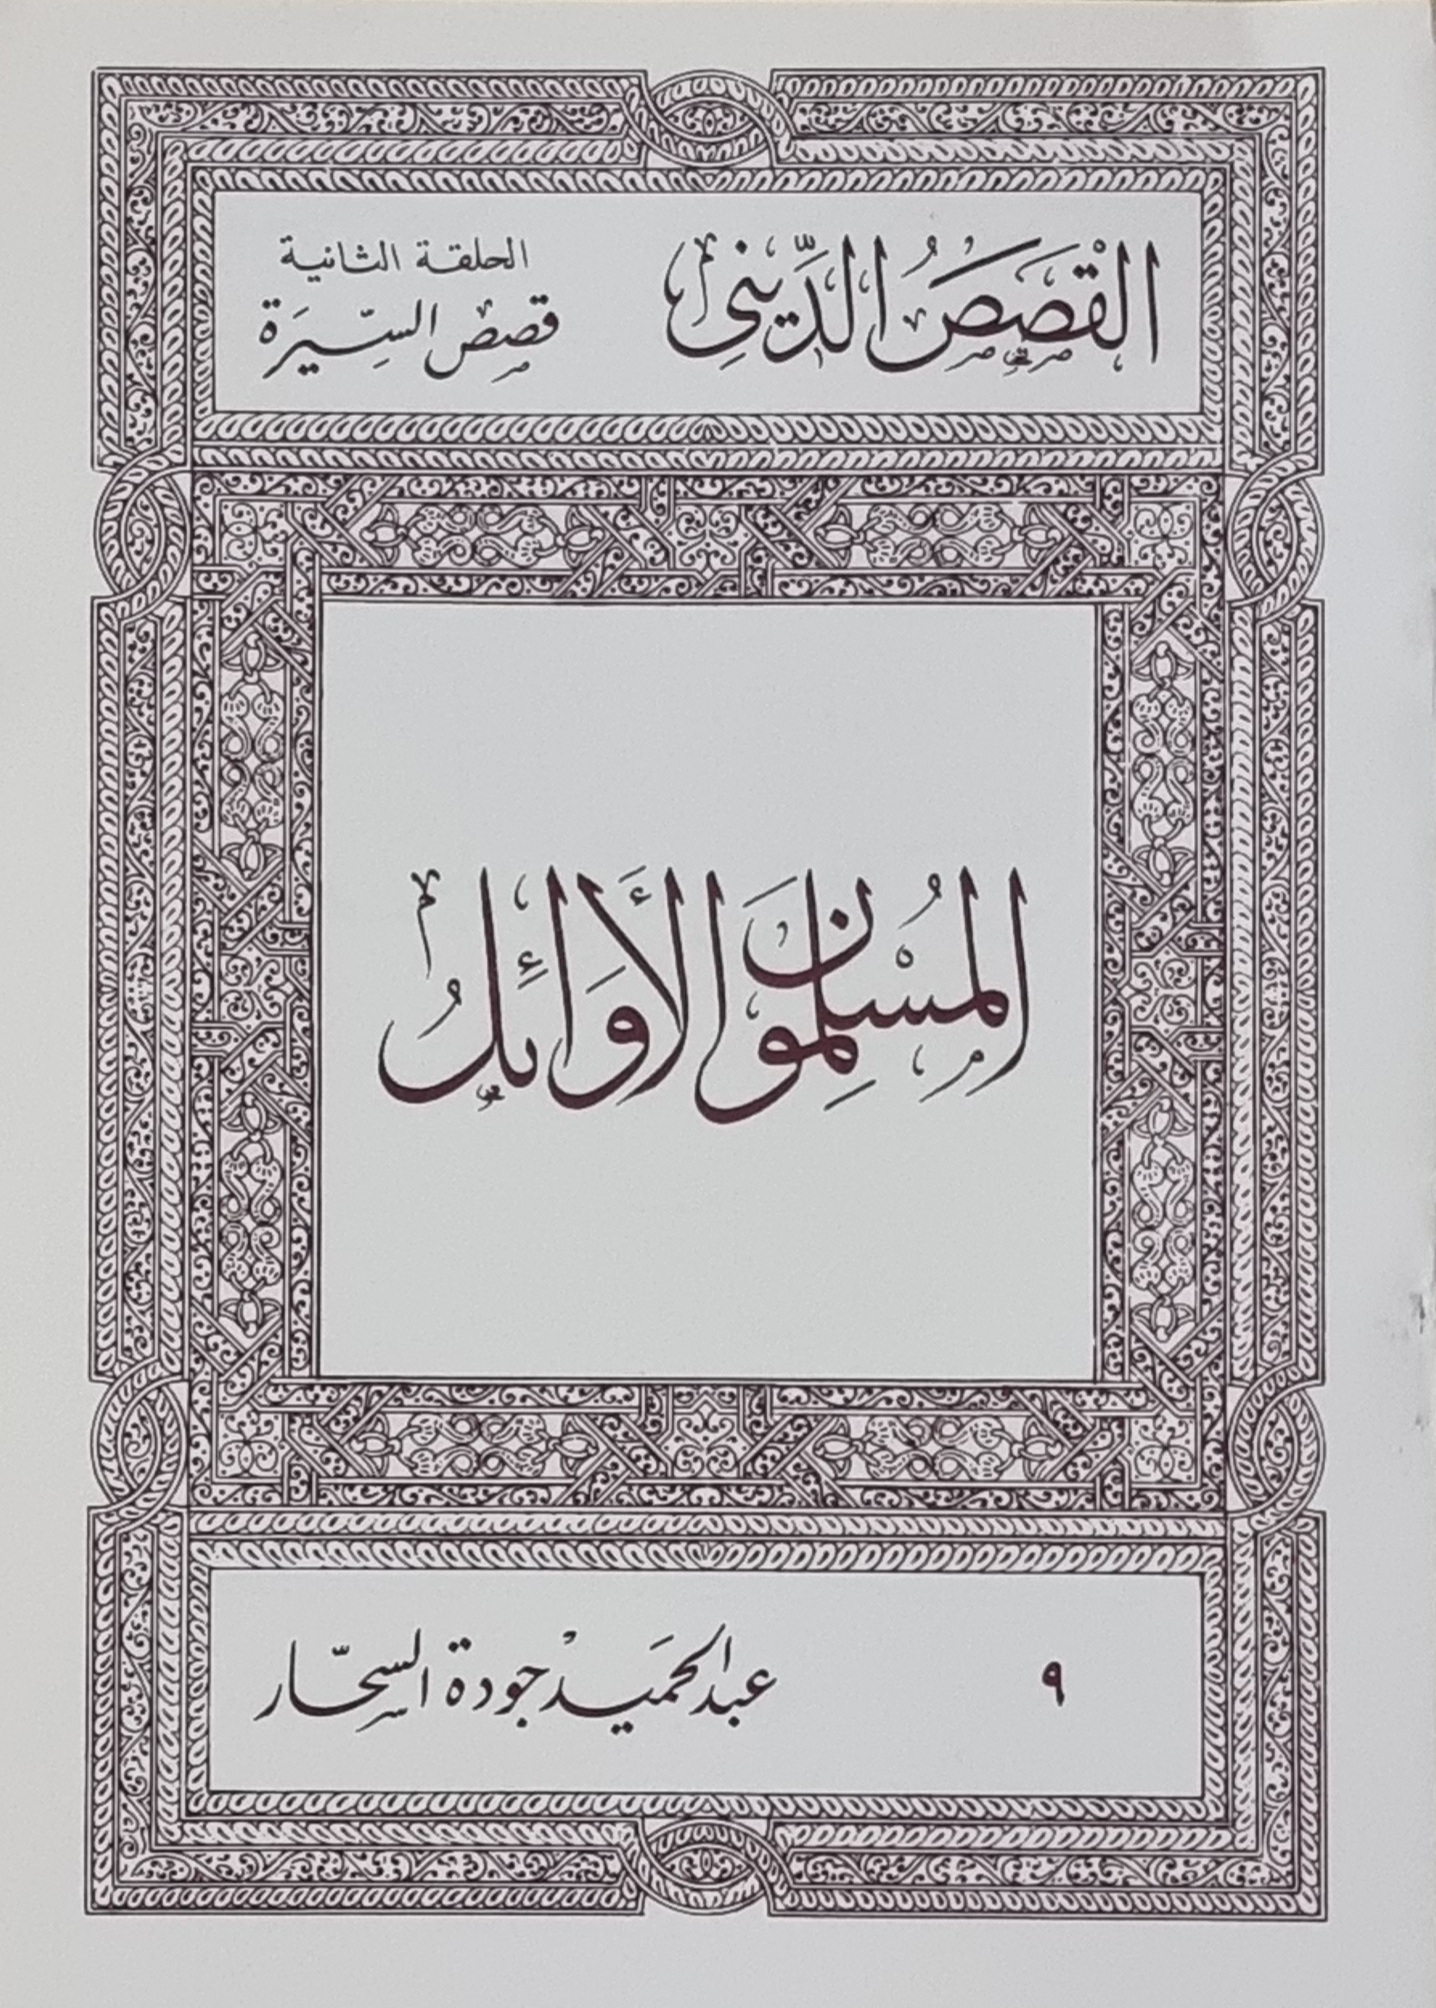 القَصَصُ الدِّينِى
الحلقة الثانية
قصص السِّيرَة
المُسْلِمُونَ الأَوَائِلُ
٩
عبد الحَميد جودة السحّار